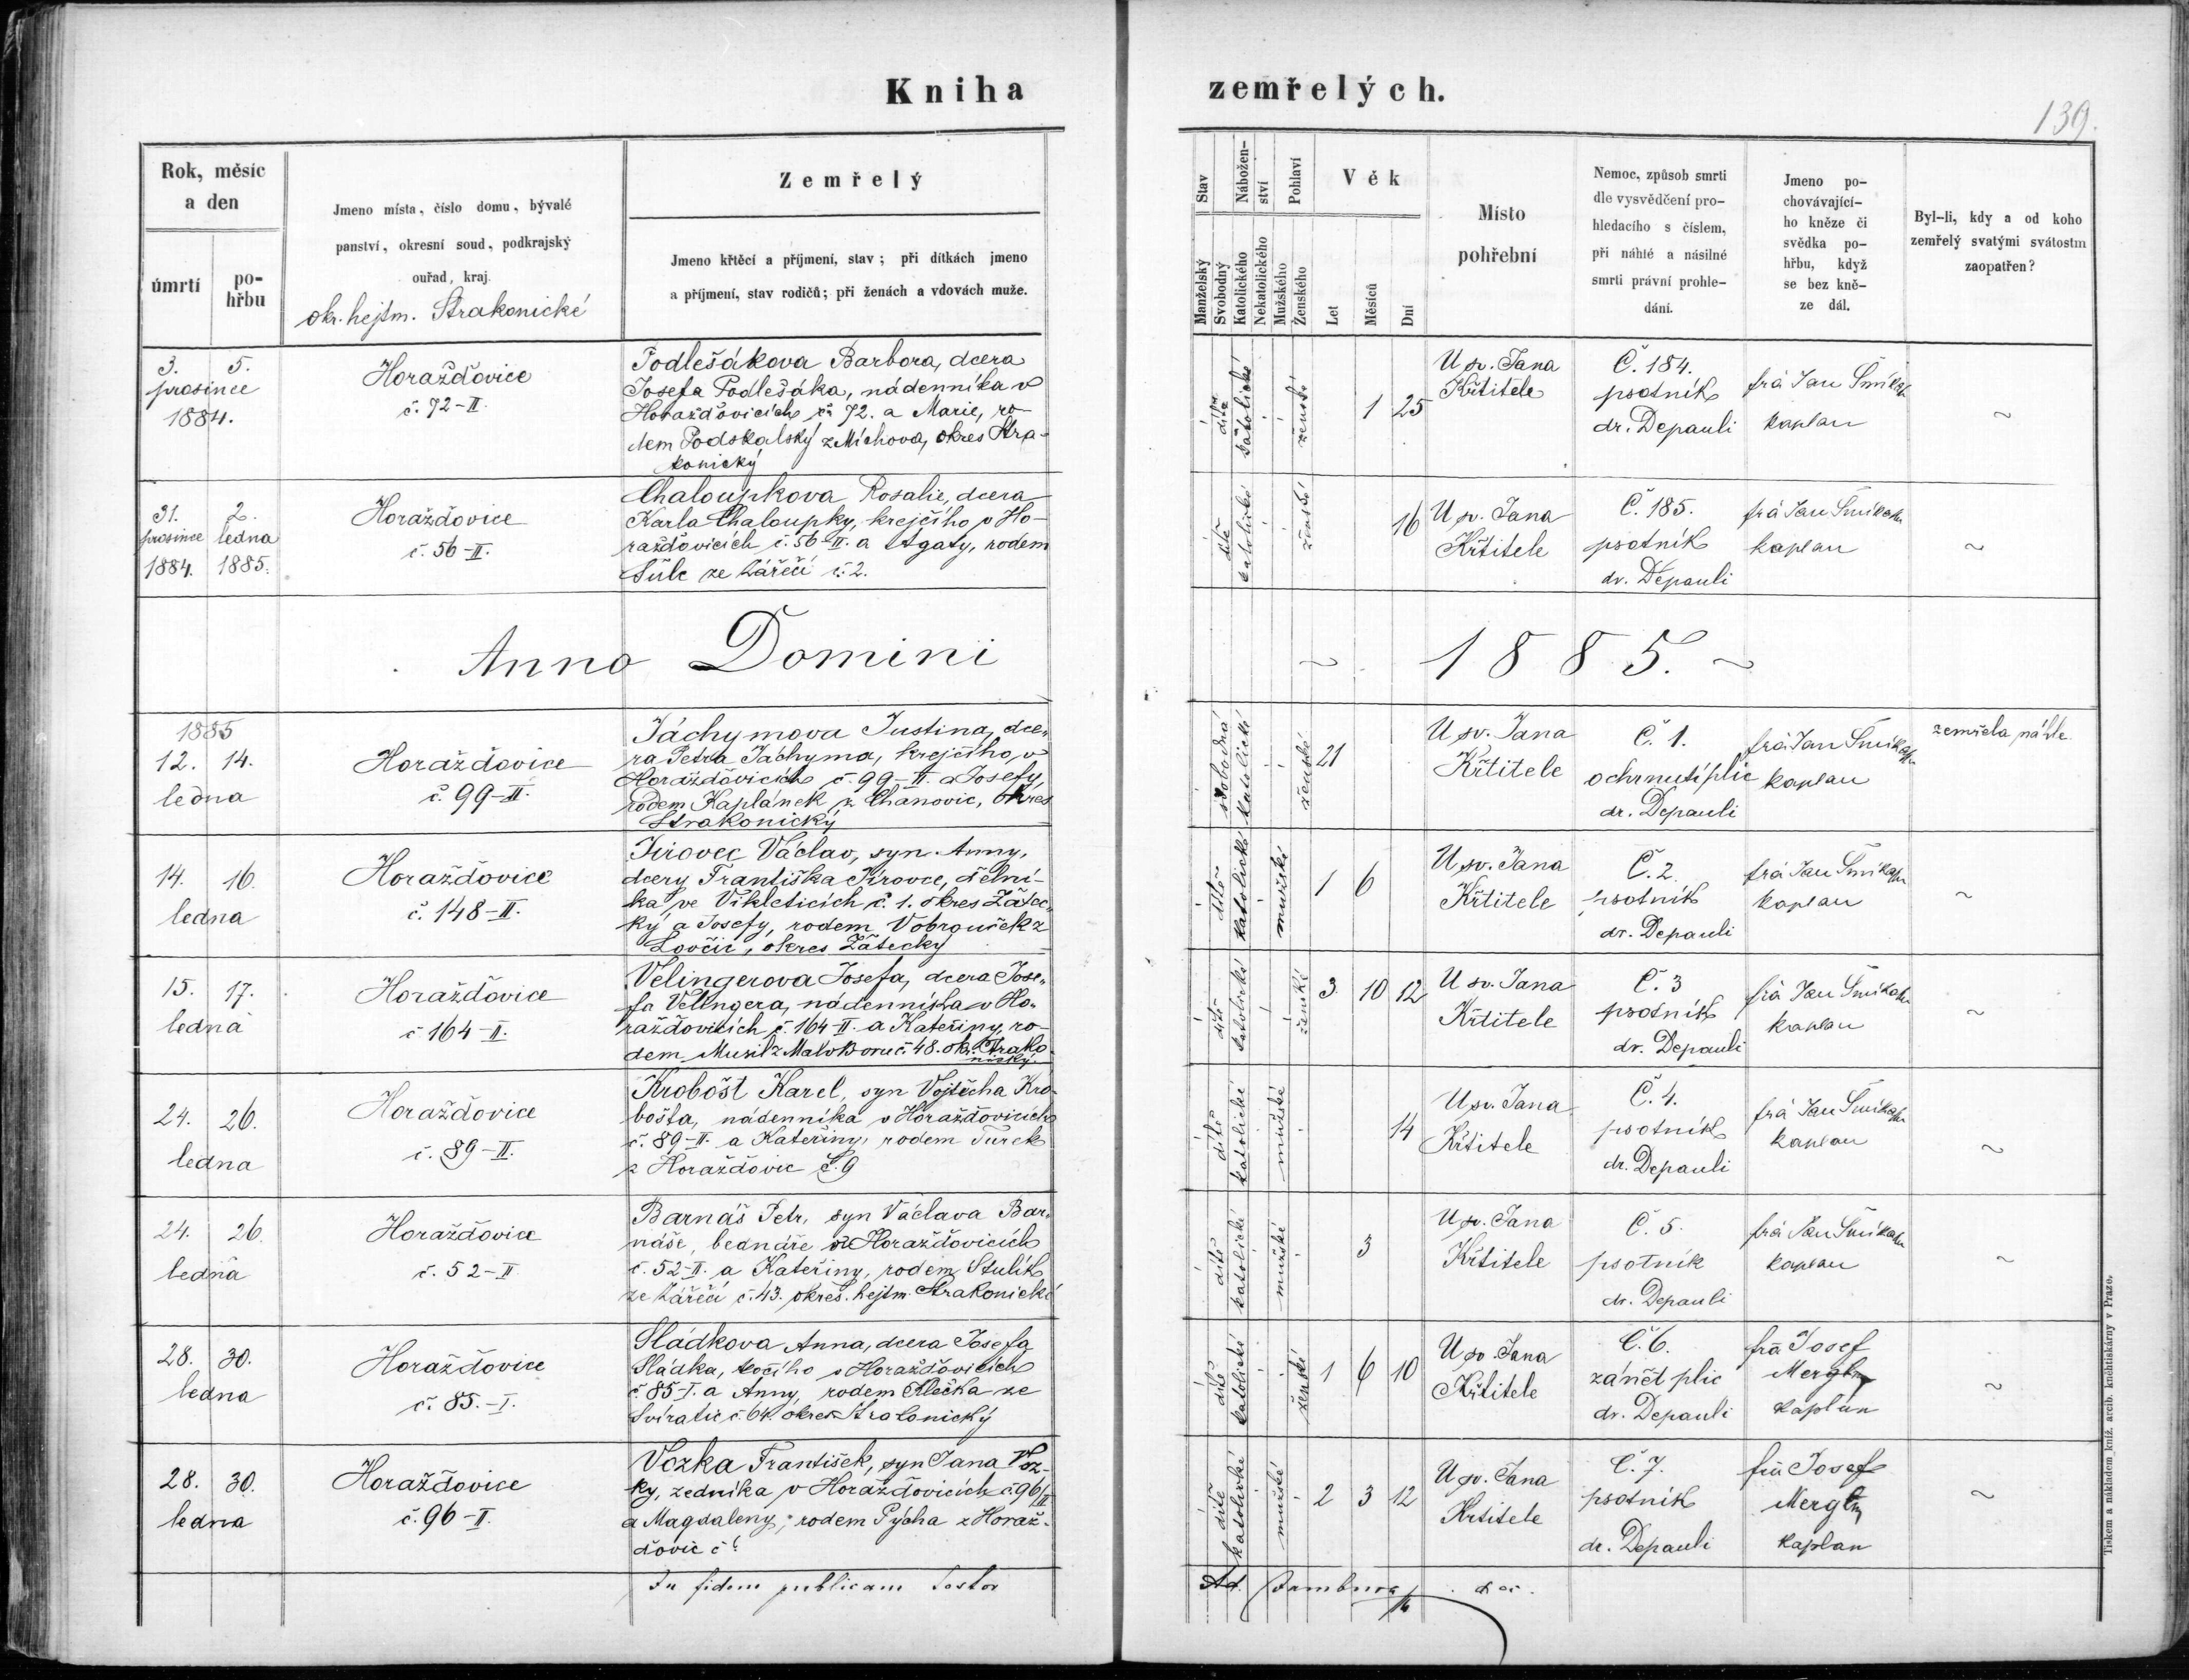 Kniha zemřelých.
139.
Rok, měsíc
a den
úmrtí
po-
hřbu
Jmeno místa, číslo domu, bývalé
panství, okresní soud, podkrajský
ouřad, kraj.
okr. hejtm. Strakonické
Zemřelý
Jmeno křtěcí a příjmení, stav; při dítkách jmeno
a příjmení, stav rodičů; při ženách a vdovách muže.
Stav
Manželský
Svobodný
Nábožen-
ství
Katolického
Nekatolického
Pohlaví
Mužského
Ženského
Věk
Let
Měsíců
Dní
Místo
pohřební
Nemoc, způsob smrti
dle vysvědčení pro-
hledacího s číslem,
při náhté a násilné
smrti právní prohle-
dání.
Jmeno po-
chovávající-
ho kněze či
svědka po-
hřbu, když
se bez kně-
ze dál.
Byl-li, kdy a od koho
zemřelý svatými svátostm
zaopatřen?
3. 5.
prosince
1884.
Horažďovice
č. 72-II.
Podlešákova Barbora, dcera
Josefa Podlešáka, nádenníka v
Horažďovicích č. 72. a Marie, ro-
dem Podskalský z Míchova, okres Stra-
konický
dítě
katolické
ženské
1 25
U sv. Jana
Křtitele
Č. 184.
psotník
dr. Depauli
frá Jan
kaplan
~
31. 2.
prosince ledna
1884. 1885.
Horažďovice
č. 56-II.
Chaloupkova Rosalie, dcera
Karla Chaloupky, krejčího v Ho-
ražďovicích č. 56-II. a Agaty, rodem
Šulc ze Zářečí č. 2.
dítě
katolické
ženské
16
U sv. Jana
Křtitele
Č. 185.
psotník
dr. Depauli
frá Jan
kaplan
~
Anno Domini ~ 1885. ~
1885
12. 14.
ledna
Horažďovice
č. 99-II.
Jáchymova Justina, dce-
ra Petra Jáchyma, krejčího v
Horažďovicích č. 99-II. a Josefy,
rodem Kaplánek z Chanovic, okres
Strakonický
svobodná
katolické
ženské
21
U sv. Jana
Křtitele
Č. 1.
ochrnutí plic
dr. Depauli
frá Jan
kaplan
zemřela náhle
14. 16.
ledna
Horažďovice
č. 148-II.
Jirovec Václav, syn Anny,
dcery Františka Jirovce, dělní-
ka ve Vikleticích č. 1. okres Žatec-
ký a Josefy, rodem Vobrouček z
Lovčic, okres Žatecky
dítě
katolické
mužské
1 6
U sv. Jana
Křtitele
Č. 2.
psotník
dr. Depauli
frá Jan
kaplan
~
15. 17.
ledna
Horažďovice
č 164-II.
Velingerova Josefa, dcera Jose-
fa Velingera, nádenníka v Ho-
ražďovicích č. 164-II. a Kateřiny, ro-
dem Musil z Malo Boru č. 48. okr. Strako-
nický.
dítě
katolické
ženské
3 10 12
U sv. Jana
Křtitele
Č. 3
psotník
dr. Depauli
frá Jan
kaplan
~
24. 26.
ledna
Horažďovice
č. 89-II.
Krobošt Karel, syn Vojtěcha Kro-
bošta, nádenníka v Horažďovicích
č. 89-II. a Kateřiny, rodem Turek
z Horažďovic č. 9
dítě
katolické
mužské
14
U sv. Jana
Křtitele
Č. 4.
psotník
dr. Depauli
frá Jan
kaplan
~
24. 26.
ledna
Horažďovice
č. 52-II
Barnáš Petr, syn Václava Bar-
náše, bednáře v Horažďovicích
č. 52-II. a Kateřiny, rodem Stulík
ze Zářečí č. 43. okres. hejtm. Strakonické
dítě
katolické
mužské
3
U sv. Jana
Křtitele
Č. 5.
psotník
dr. Depauli
frá Jan
kaplan
~
28. 30.
ledna
Horažďovice
č. 85.-I.
Sládkova Anna, dcera Josefa
Sládka, kočího v Horažďovicích
č. 85-I. a Anny, rodem Klečka ze
Svíratic č. 64. okres Strakonický
dítě
katolické
ženské
1 6 10
U sv. Jana
Křtitele
Č. 6.
zánět plic
dr. Depauli
frá Josef
Mergl
kaplan
~
28. 30.
ledna
Horažďovice
č. 96-II.
Vozka František, syn Jana Voz-
ky, zedníka v Horažďovicích č. 96/II
a Magdaleny, rodem Pýcha z Horaž-
ďovic č ?
dítě
katolické
mužské
2 3 12
U sv. Jana
Křtitele
Č. 7.
psotník
dr. Depauli
frá Josef
Mergl
kaplan
~
In fidem publicam testor
Tiskem a nákladem kníž. arcib. knihtiskárny v Praze.